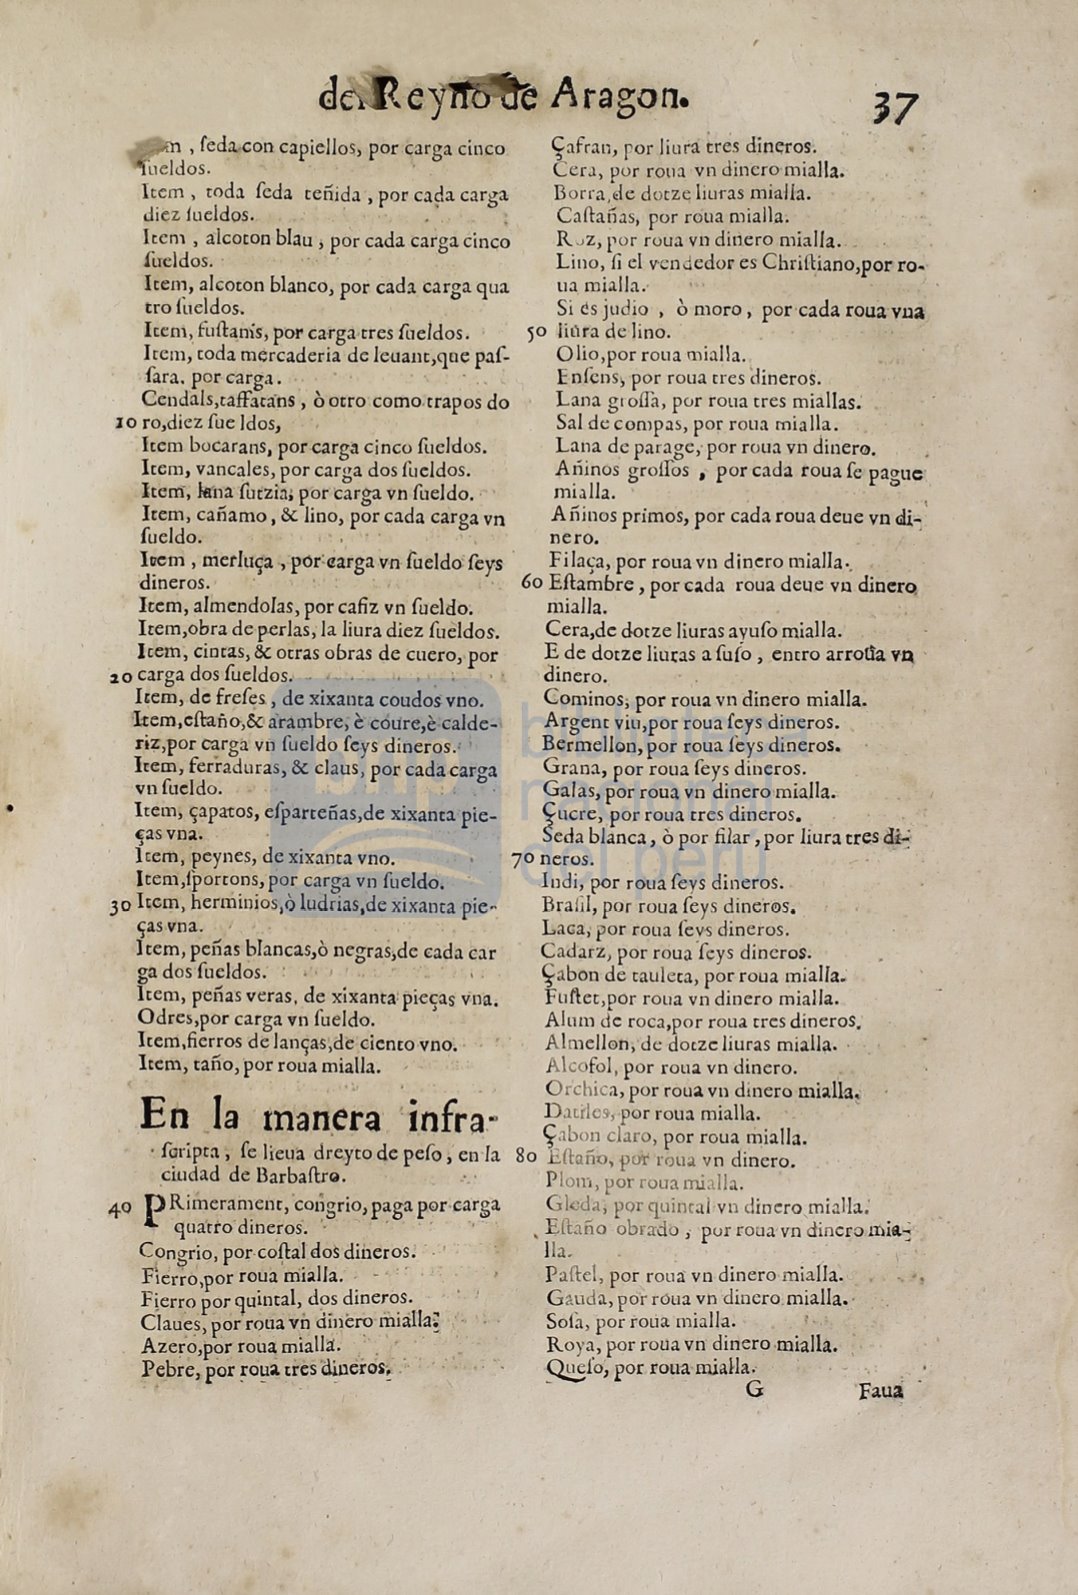 del Reyno de Aragon. 37
, ſeda con capiellos, por carga cinco
ſueldos.
Item , toda ſeda teñida , por cada carga
diez ſueldos.
Item , alcoton blau , por cada carga cinco
ſueldos.
Item, alcoton blanco, por cada carga qua
tro ſueldos.
Item, fuſtanis, por carga tres ſueldos.
Item, toda mercaderia de leuant,que paſ-
ſara. por carga.
Cendals,taffatans , ò otro como trapos do
10 ro,diez ſue ldos,
Item bocarans, por carga cinco ſueldos.
Item, vancales, por carga dos ſueldos.
Item, lana ſutzia, por carga vn ſueldo.
Item, cañamo, & lino, por cada carga vn
ſueldo.
Item , merluça , por carga vn ſueldo ſeys
dineros.
Item, almendolas, por cafiz vn ſueldo.
Item,obra de perlas, la liura diez ſueldos.
Item, cintas, & otras obras de cuero, por
20 carga dos ſueldos.
Item, de freſes , de xixanta coudos vno.
Item,eſtaño,& arambre, è coure,è calde-
riz,por carga vn ſueldo ſeys dineros.
Item, ferraduras, & claus, por cada carga
vn ſueldo.
Item, çapatos, eſparteñas,de xixanta pie-
ças vna.
Item, peynes, de xixanta vno.
Item,ſportons, por carga vn ſueldo.
30 Item, herminios,ò ludrias,de xixanta pie-
ças vna.
Item, peñas blancas,ò negras,de cada car
ga dos ſueldos.
Item, peñas veras, de xixanta pieças vna.
Odres,por carga vn ſueldo.
Item,fierros de lanças,de ciento vno.
Item, taño, por roua mialla.
En la manera infra-
ſcripta, ſe lieua dreyto de peſo, en la
ciudad de Barbaſtro.
40 PRimerament, congrio, paga por carga
quatro dineros.
Congrio, por coſtal dos dineros.
Fierro,por roua mialla.
Fierro por quintal, dos dineros.
Claues, por roua vn dinero mialla.
Azero,por roua mialla.
Pebre, por roua tres dineros.
Çafran, por liura tres dineros.
Cera, por roua vn dinero mialla.
Borra,de dotze liuras mialla.
Caſtañas, por roua mialla.
Roz, por roua vn dinero mialla.
Lino, ſi el vendedor es Chriſtiano,por ro-
ua mialla.
Si es judio , ò moro, por cada roua vna
50 liura de lino.
Olio,por roua mialla.
Enſens, por roua tres dineros.
Lana groſſa, por roua tres miallas.
Sal de compas, por roua mialla.
Lana de parage, por roua vn dinero.
Añinos groſſos , por cada roua ſe pague
mialla.
Añinos primos, por cada roua deue vn di-
nero.
Filaça, por roua vn dinero mialla.
60 Eſtambre, por cada roua deue vn dinero
mialla.
Cera,de dotze liuras ayuſo mialla.
E de dotze liuras a ſuſo , entro arroua vn
dinero.
Cominos, por roua vn dinero mialla.
Argent viu,por roua ſeys dineros.
Bermellon, por roua ſeys dineros.
Grana, por roua ſeys dineros.
Galas, por roua vn dinero mialla.
Çucre, por roua tres dineros.
Seda blanca, ò por filar , por liura tres di-
70 neros.
Indi, por roua ſeys dineros.
Braſil, por roua ſeys dineros.
Laca, por roua ſeys dineros.
Cadarz, por roua ſeys dineros.
Çabon de tauleta, por roua mialla.
Fuſtet,por roua vn dinero mialla.
Alum de roca,por roua tres dineros.
Almellon, de dotze liuras mialla.
Alcofol, por roua vn dinero.
Orchica, por roua vn dinero mialla.
Datiles, por roua mialla.
Çabon claro, por roua mialla.
80 Eſtaño, por roua vn dinero.
Plom, por roua mialla.
Gleda, por quintal vn dinero mialla.
Eſtaño obrado , por roua vn dinero mia-
lla.
Paſtel, por roua vn dinero mialla.
Gauda, por roua vn dinero mialla.
Soſa, por roua mialla.
Roya, por roua vn dinero mialla.
Queſo, por roua mialla.
G Faua
biblioteca
nacional
del perú
bnp